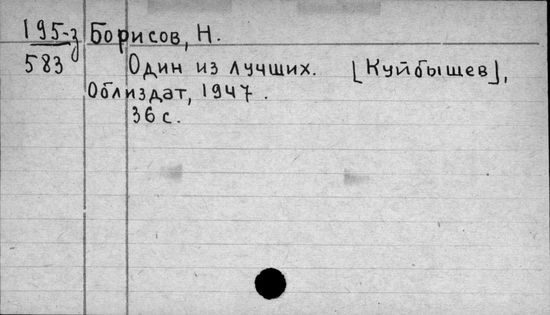 195-3 Борисов, Н.
583 Один из лучших. [Куйбышев],
Облиздат, 1947.
36 с.